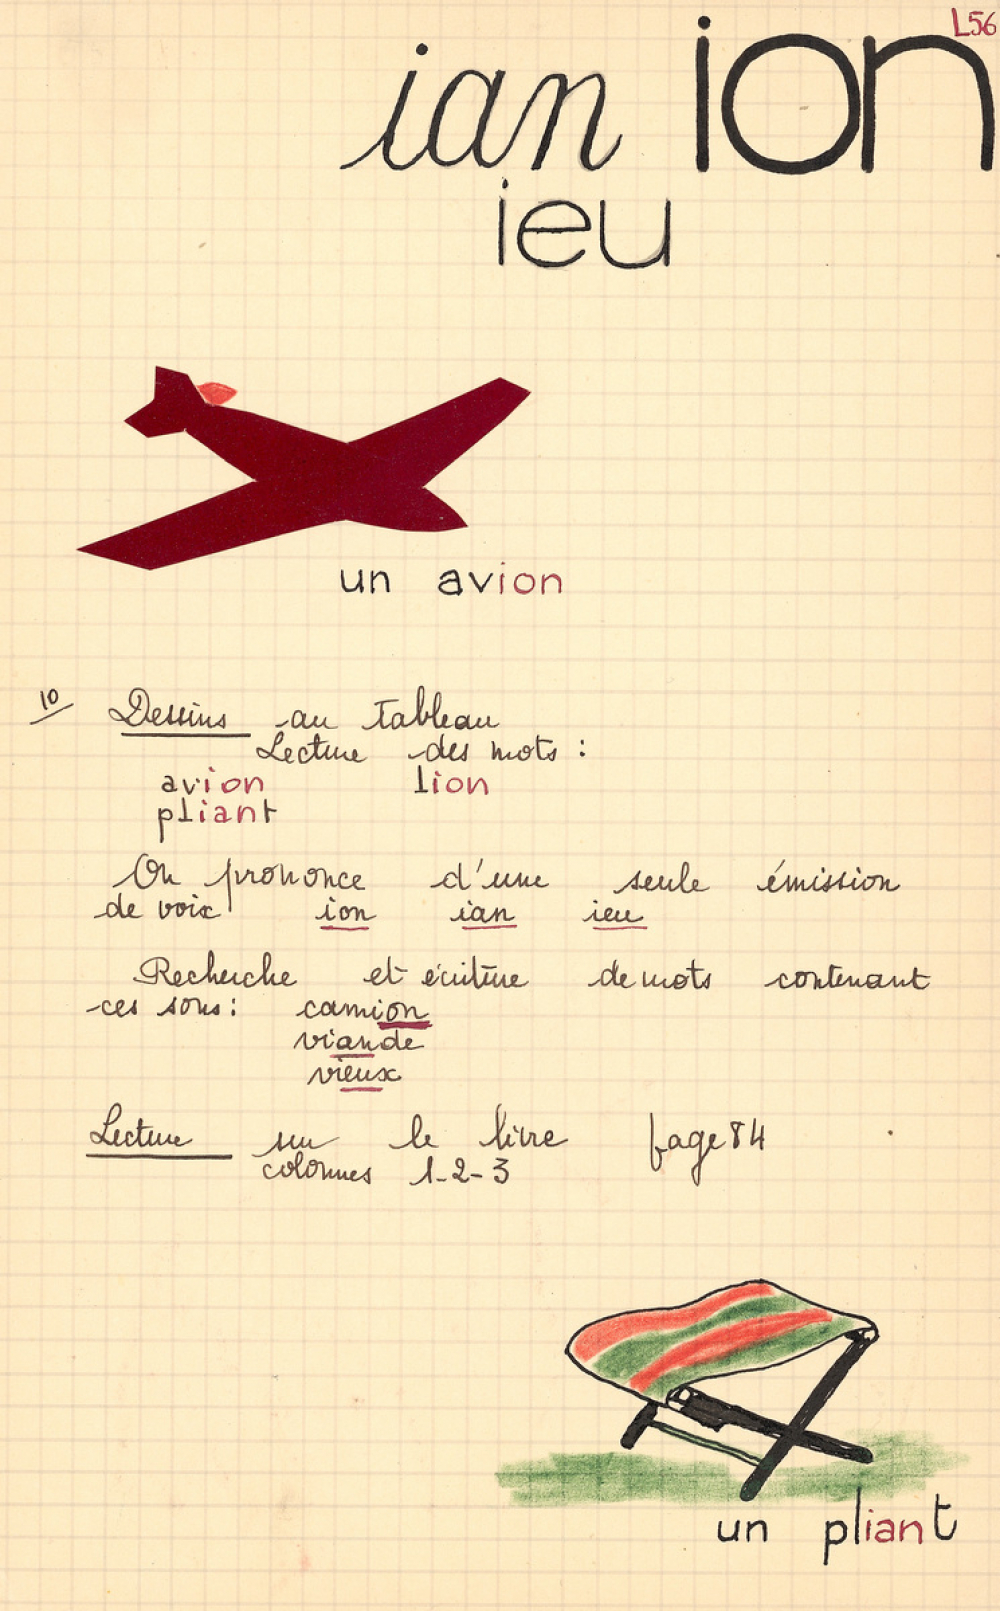 L56
ian ion
ieu
un avion
10
Dessins au tableau
Lecture des mots :
avion lion
pliant
On prononce d'une seule émission
de voix ion ian ieu
Recherche et écriture de mots contenant
ces sons : camion
viande
vieux
Lecture sur le livre page 84
colonnes 1-2-3
un pliant